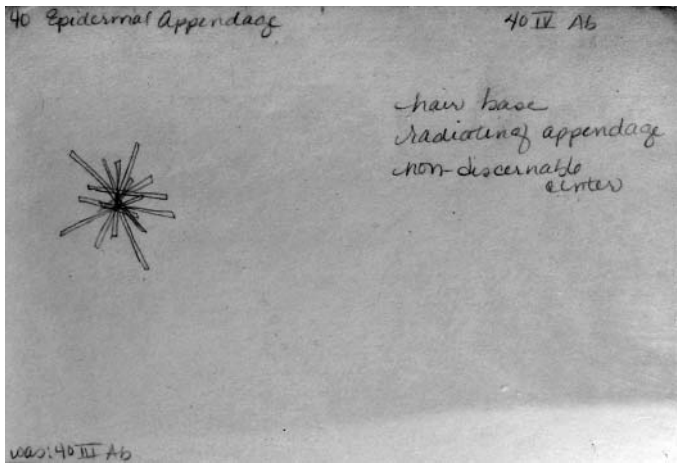 40 Epidermal Appendage
40 IV Ab
hair base
radiating appendage
non-discernable
center
was: 40 III Ab